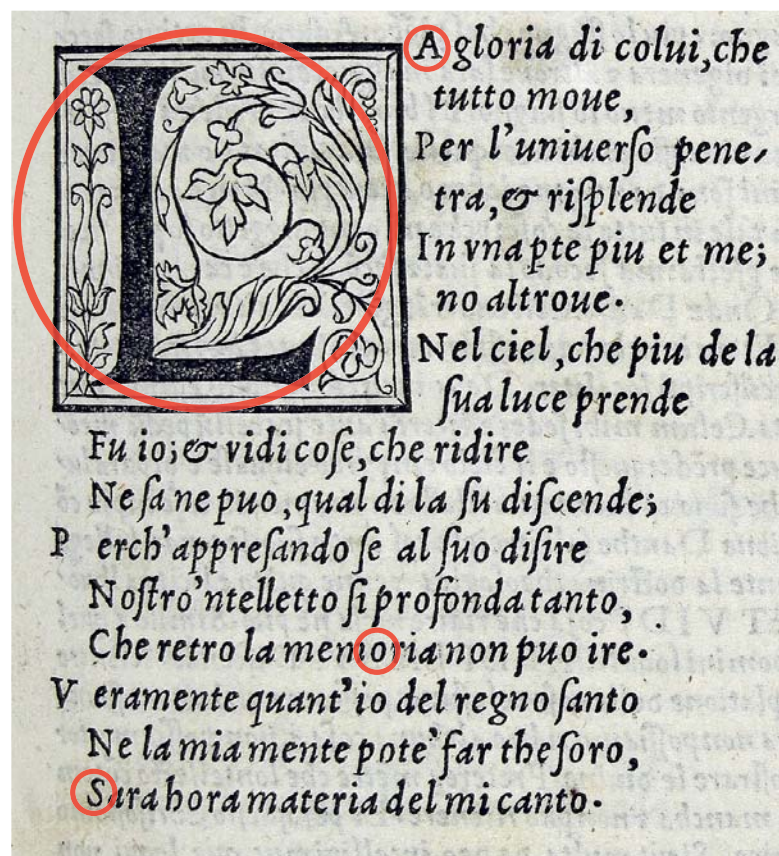 LA gloria di colui, che
tutto moue,
Per l'uniuerſo pene-
tra, & riſplende
In vna ꝑte piu et me;
no altroue.
Nel ciel, che piu de la
ſua luce prende
Fu io; & vidi coſe, che ridire
Ne ſa ne puo, qual di la ſu diſcende;
P erch'appreſando ſe al ſuo diſire
Noſtro'ntelletto ſi profonda tanto,
Che retro la memoria non puo ire.
V eramente quant'io del regno ſanto
Ne la mia mente pote' far theſoro,
Sara hora materia del mi canto.